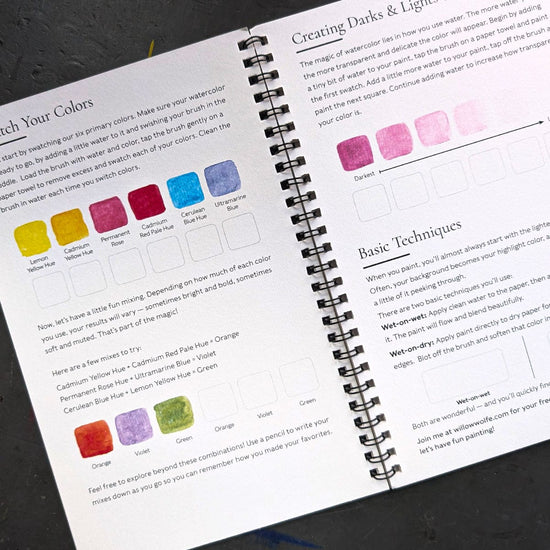 tch Your Colors
start by swatching our six primary colors. Make sure your watercolor
eady to go, by adding a little water to it and swishing your brush in the
ddle. Load the brush with water and color, tap the brush gently on a
aper towel to remove excess and swatch each of your colors. Clean the
brush in water each time you switch colors.
Lemon Yellow Hue
Cadmium Yellow Hue
Permanent Rose
Cadmium Red Pale Hue
Cerulean Blue Hue
Ultramarine Blue
Now, let's have a little fun mixing. Depending on how much of each color
you use, your results will vary — sometimes bright and bold, sometimes
soft and muted. That's part of the magic!
Here are a few mixes to try:
Cadmium Yellow Hue + Cadmium Red Pale Hue = Orange
Permanent Rose Hue + Ultramarine Blue = Violet
Cerulean Blue Hue + Lemon Yellow Hue = Green
Orange Violet Green Orange Violet Green
Feel free to explore beyond these combinations! Use a pencil to write your
mixes down as you go so you can remember how you made your favorites.
Creating Darks & Lights
The magic of watercolor lies in how you use water. The more water
the more transparent and delicate the color will appear. Begin by adding
a tiny bit of water to your paint, tap the brush on a paper towel and paint
the first swatch. Add a little more water to your paint, tap off the brush a
paint the next square. Continue adding water to increase how transpare
your color is.
Darkest
Basic Techniques
When you paint, you'll almost always start with the lighte
Often, your background becomes your highlight color,
a little of it peeking through.
There are two basic techniques you'll use:
Wet-on-wet: Apply clean water to the paper, then a
it. The paint will flow and blend beautifully.
Wet-on-dry: Apply paint directly to dry paper fo
edges. Blot off the brush and soften that color in
Wet-on-wet
Both are wonderful — and you'll quickly fin
Join me at willowwolfe.com for your free
let's have fun painting!